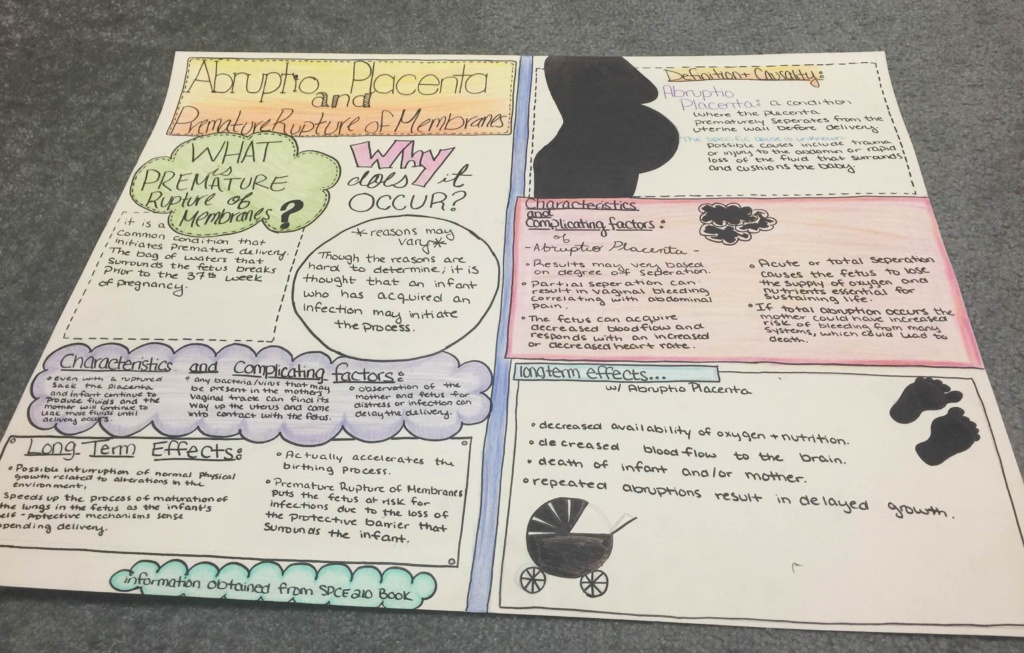 Abruptio Placenta
and
Premature Rupture of Membranes
WHAT
is
PREMATURE
Rupture of
Membranes?
it is a
common condition that
initiates premature delivery.
The bag of waters that
surrounds the fetus breaks
prior to the 37th week
of pregnancy.
Why
does it
OCCUR?
*reasons may
vary*
Though the reasons are
hard to determine; it is
thought that an infant
who has acquired an
infection may initiate
the process.
Characteristics and Complicating factors:
• even with a ruptured
sack the placenta
and infant continue to
produce fluids and the
mother will continue to
leak those fluids until
delivery occurs.
• any bacteria/virus that may
be present in the mothers
vaginal tracte can find its
way up the uterus and come
into contact with the fetus.
• observation of the
mother and fetus for
distress or infection can
delay the delivery.
Long-Term Effects:
• Possible inturruption of normal physical
growth related to alterations in the
environment.
Speeds up the process of maturation of
the lungs in the fetus as the infant's
self-protective mechanisms sense
pending delivery.
• Actually accelerates the
birthing process.
• Premature Rupture of Membranes
puts the fetus at risk for
infections due to the loss of
the protective barrier that
surrounds the infant.
information obtained from SPCE210 Book
Definition + Causality:
Abruptio
Placenta: a condition
where the placenta
prematurely seperates from the
uterine wall before delivery
The specific cause is unknown.
possible causes include trauma
or injury to the abdomen or rapid
loss of the fluid that surrounds
and cushions the baby
Characteristics
and
Complicating factors:
of
-Abruptio Placenta-
• Results may vary based
on degree of seperation.
• Partial seperation can
result in vaginal bleeding
correlating with abdominal
pain.
• The fetus can acquire
decreased bloodflow and
responds with an increased
or decreased heart rate.
• Acute or total seperation
causes the fetus to lose
the supply of oxygen and
nutrients essential for
sustaining life.
• If total abruption occurs the
mother could have increased
risk of bleeding from many
systems, which could lead to
death.
longterm effects...
w/ Abruptio Placenta
• decreased availability of oxygen + nutrition.
• decreased blood flow to the brain.
• death of infant and/or mother.
• repeated abruptions result in delayed growth.